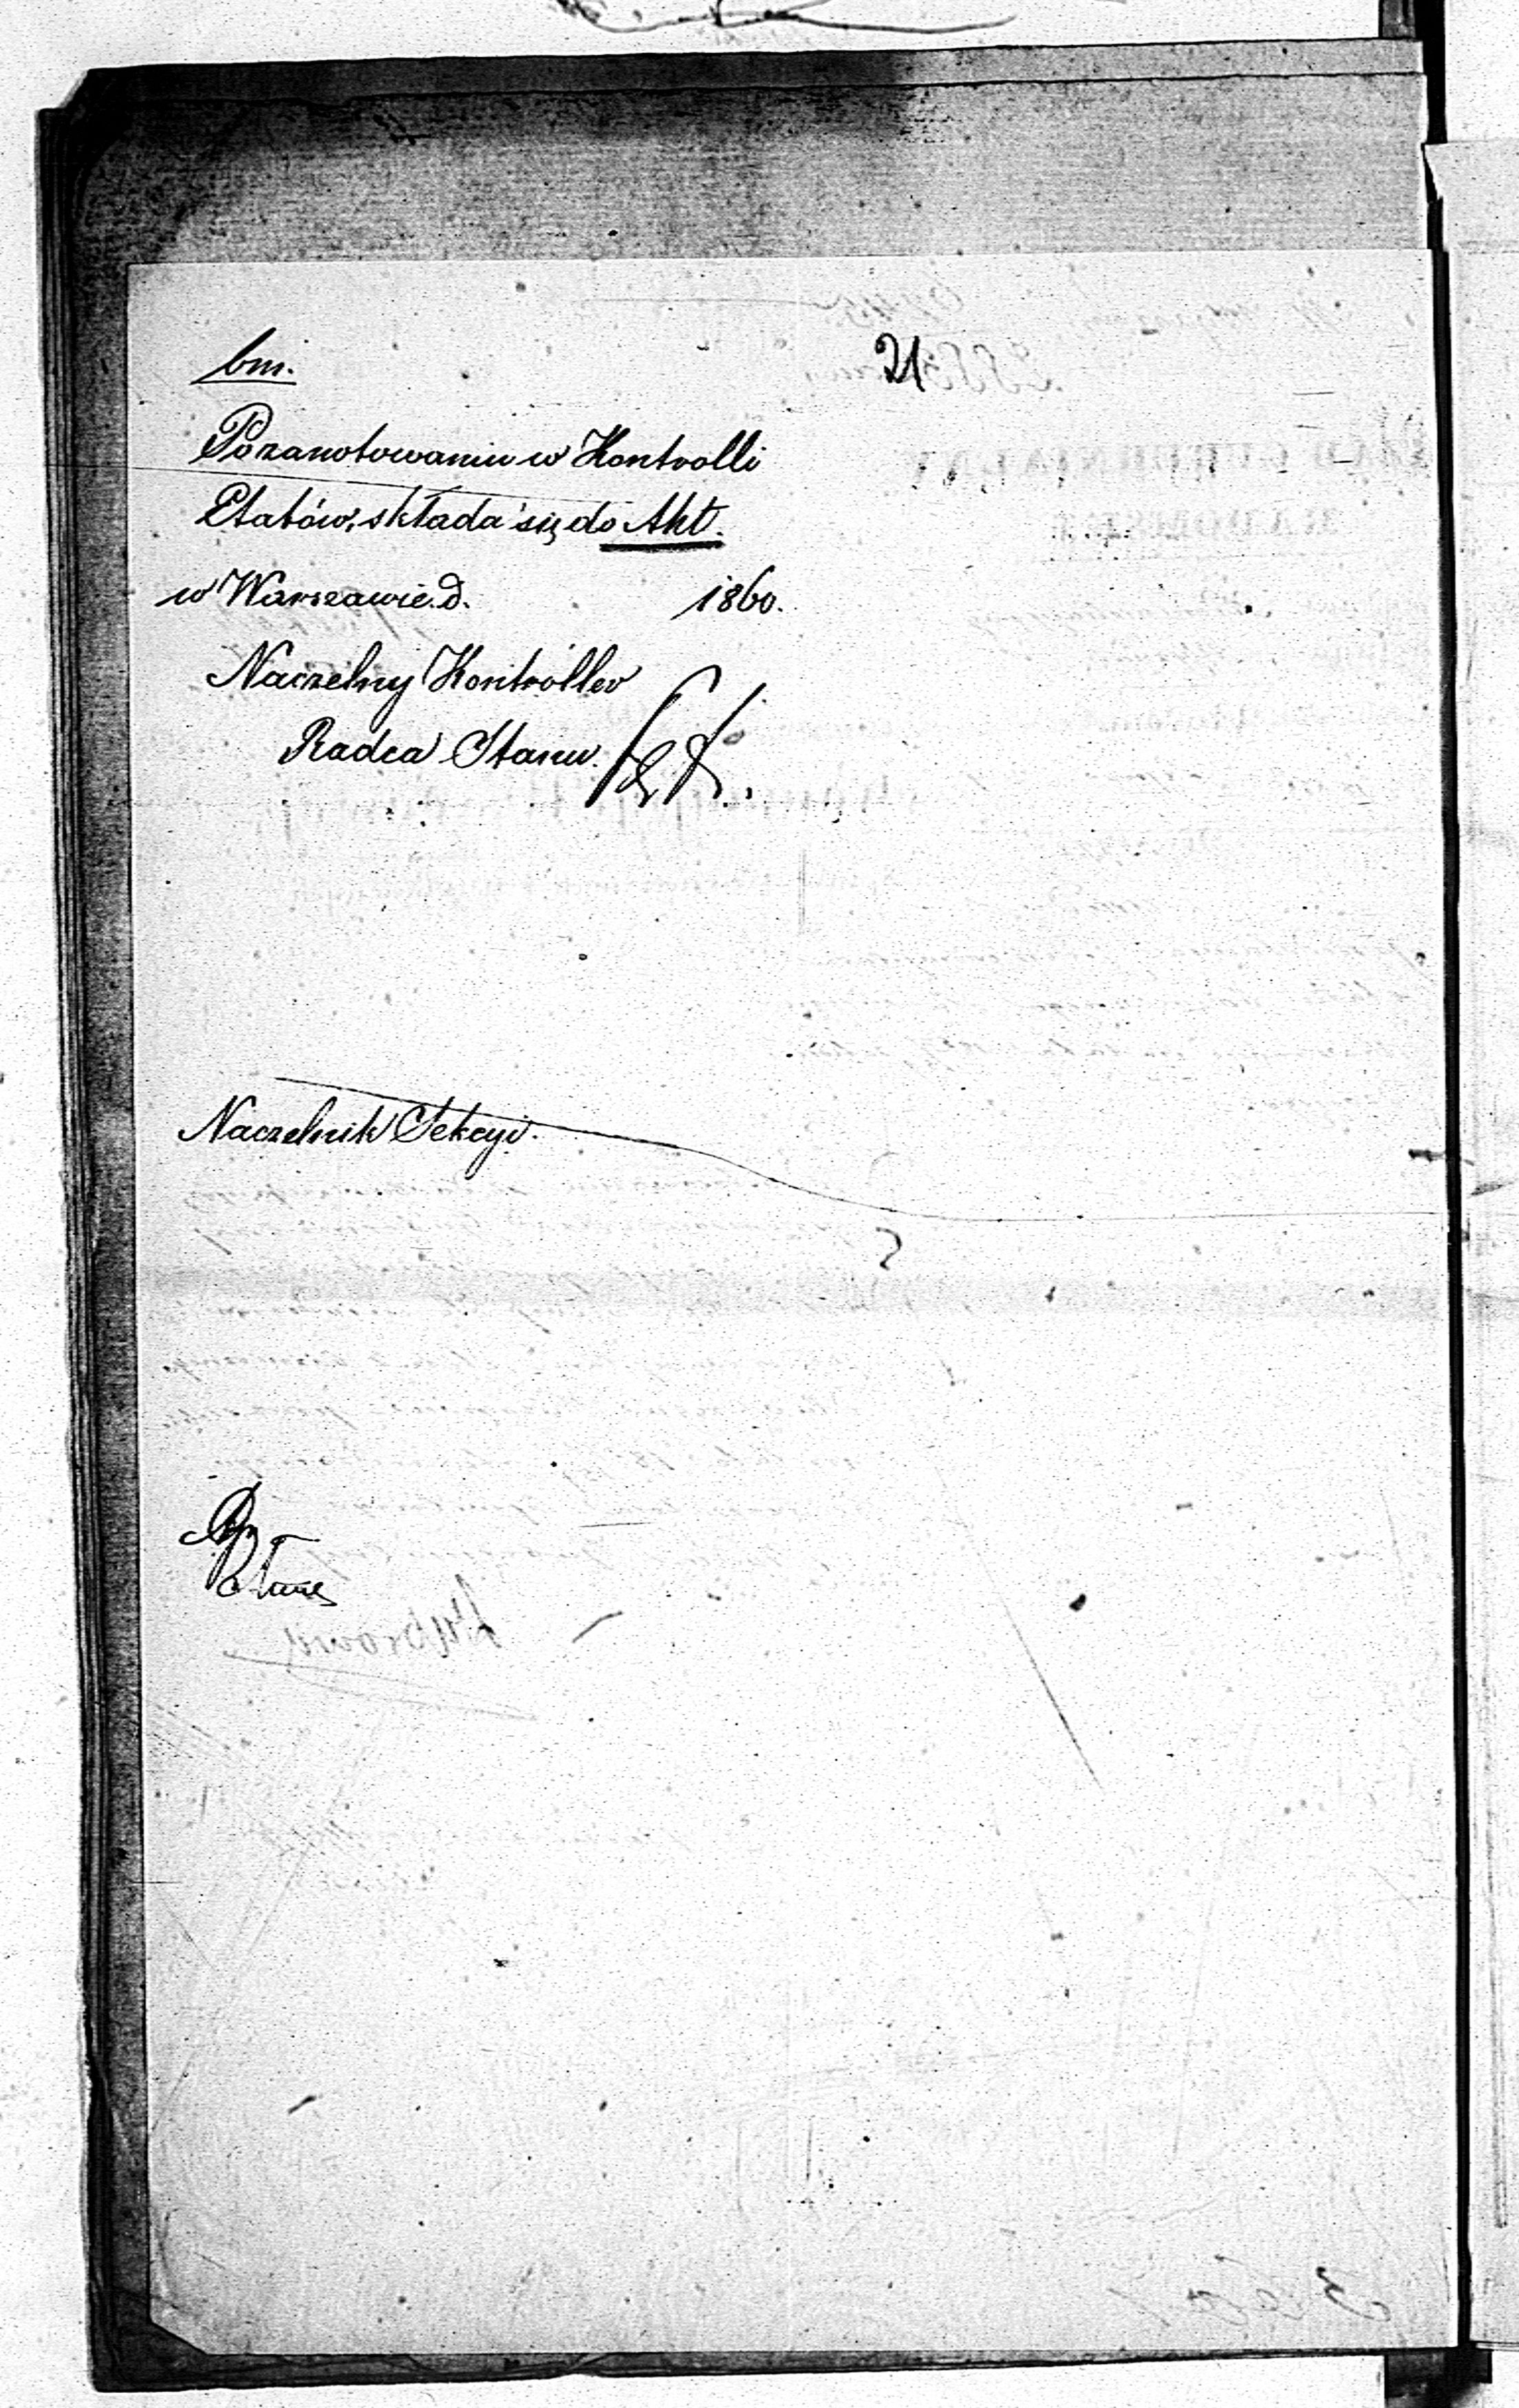 bm.
21
Po zanotowaniu w Kontrolli
Etatów, składa się do Akt.
w Warszawie d. 1860.
Naczelny Kontroller
Radca Stanu.
Naczelnik Sekcyi.